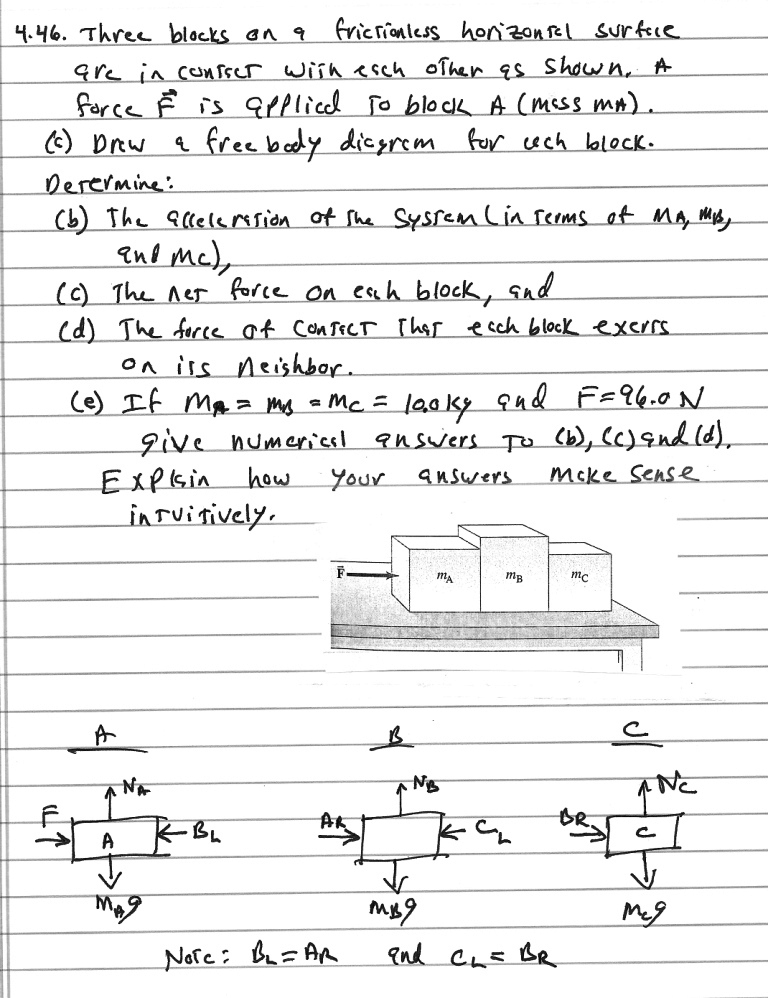 4.46. Three blocks on a frictionless horizontal surface
are in contact with each other as shown. A
force F⃗ is applied to block A (mass mA).
(a) Draw a free body diagram for each block.
Determine:
(b) The acceleration of the system (in terms of mA, mB,
and mc),
(c) The net force on each block, and
(d) The force of contact that each block exerts
on its neighbor.
(e) If mA = mB = mC = 10.0 kg and F = 96.0 N
give numerical answers to (b), (c) and (d).
Explain how your answers make sense
intuitively.
F⃗ mA mB mC
A B C
NA NB NC
F A BL AR CL BR C
mAg mBg mcg
Note: BL = AR and CL = BR